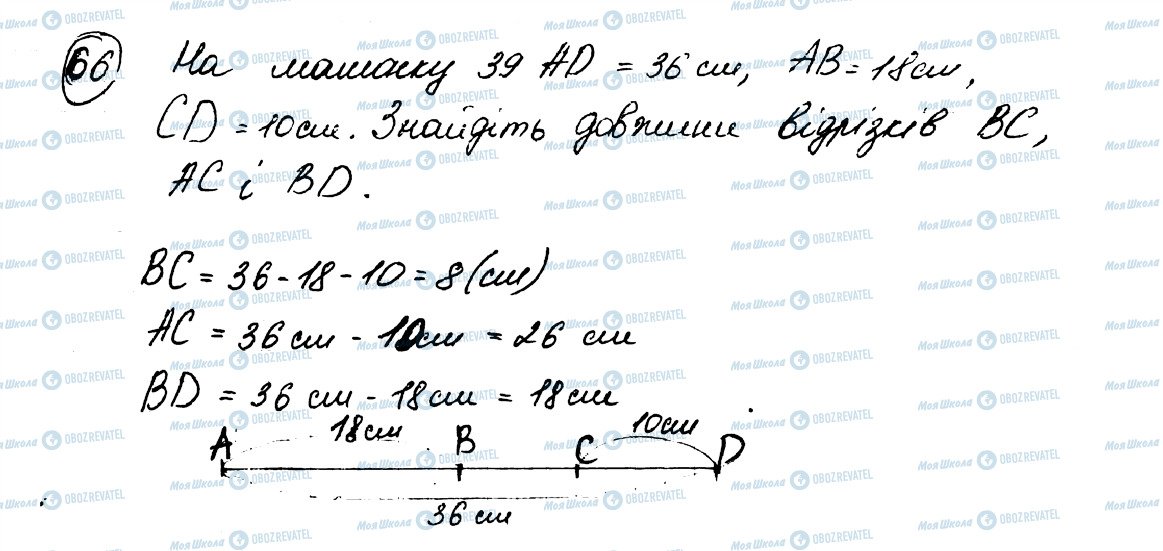 66 На малюнку 39 AD = 36 см, AB = 18 см,
CD = 10 см. Знайдіть довжини відрізків BC,
AC і BD.
BC = 36 - 18 - 10 = 8 (см)
AC = 36 см - 10 см = 26 см
BD = 36 см - 18 см = 18 см
A 18 см B C 10 см D
36 см
Моя Школа OBOZREVATEL